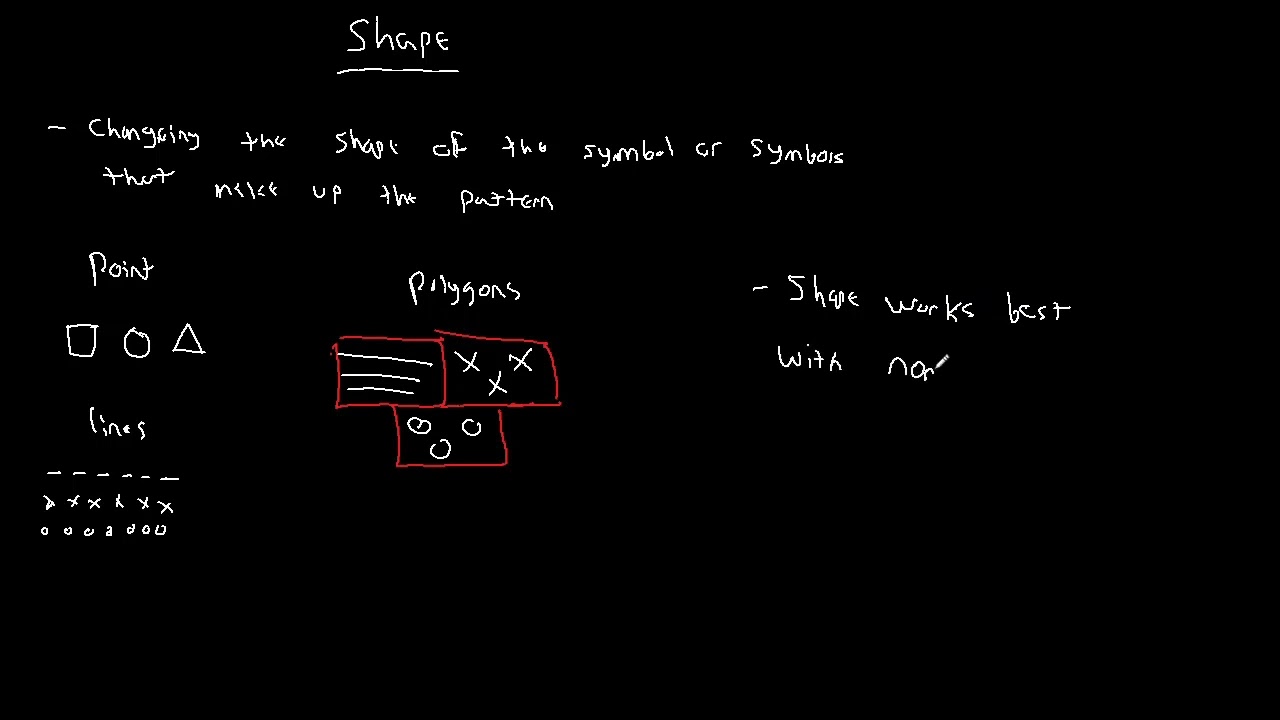 Shape
- Changing the shape of the symbol or symbols
that make up the pattern
Point
Polygons
- Shape works best
with non
lines